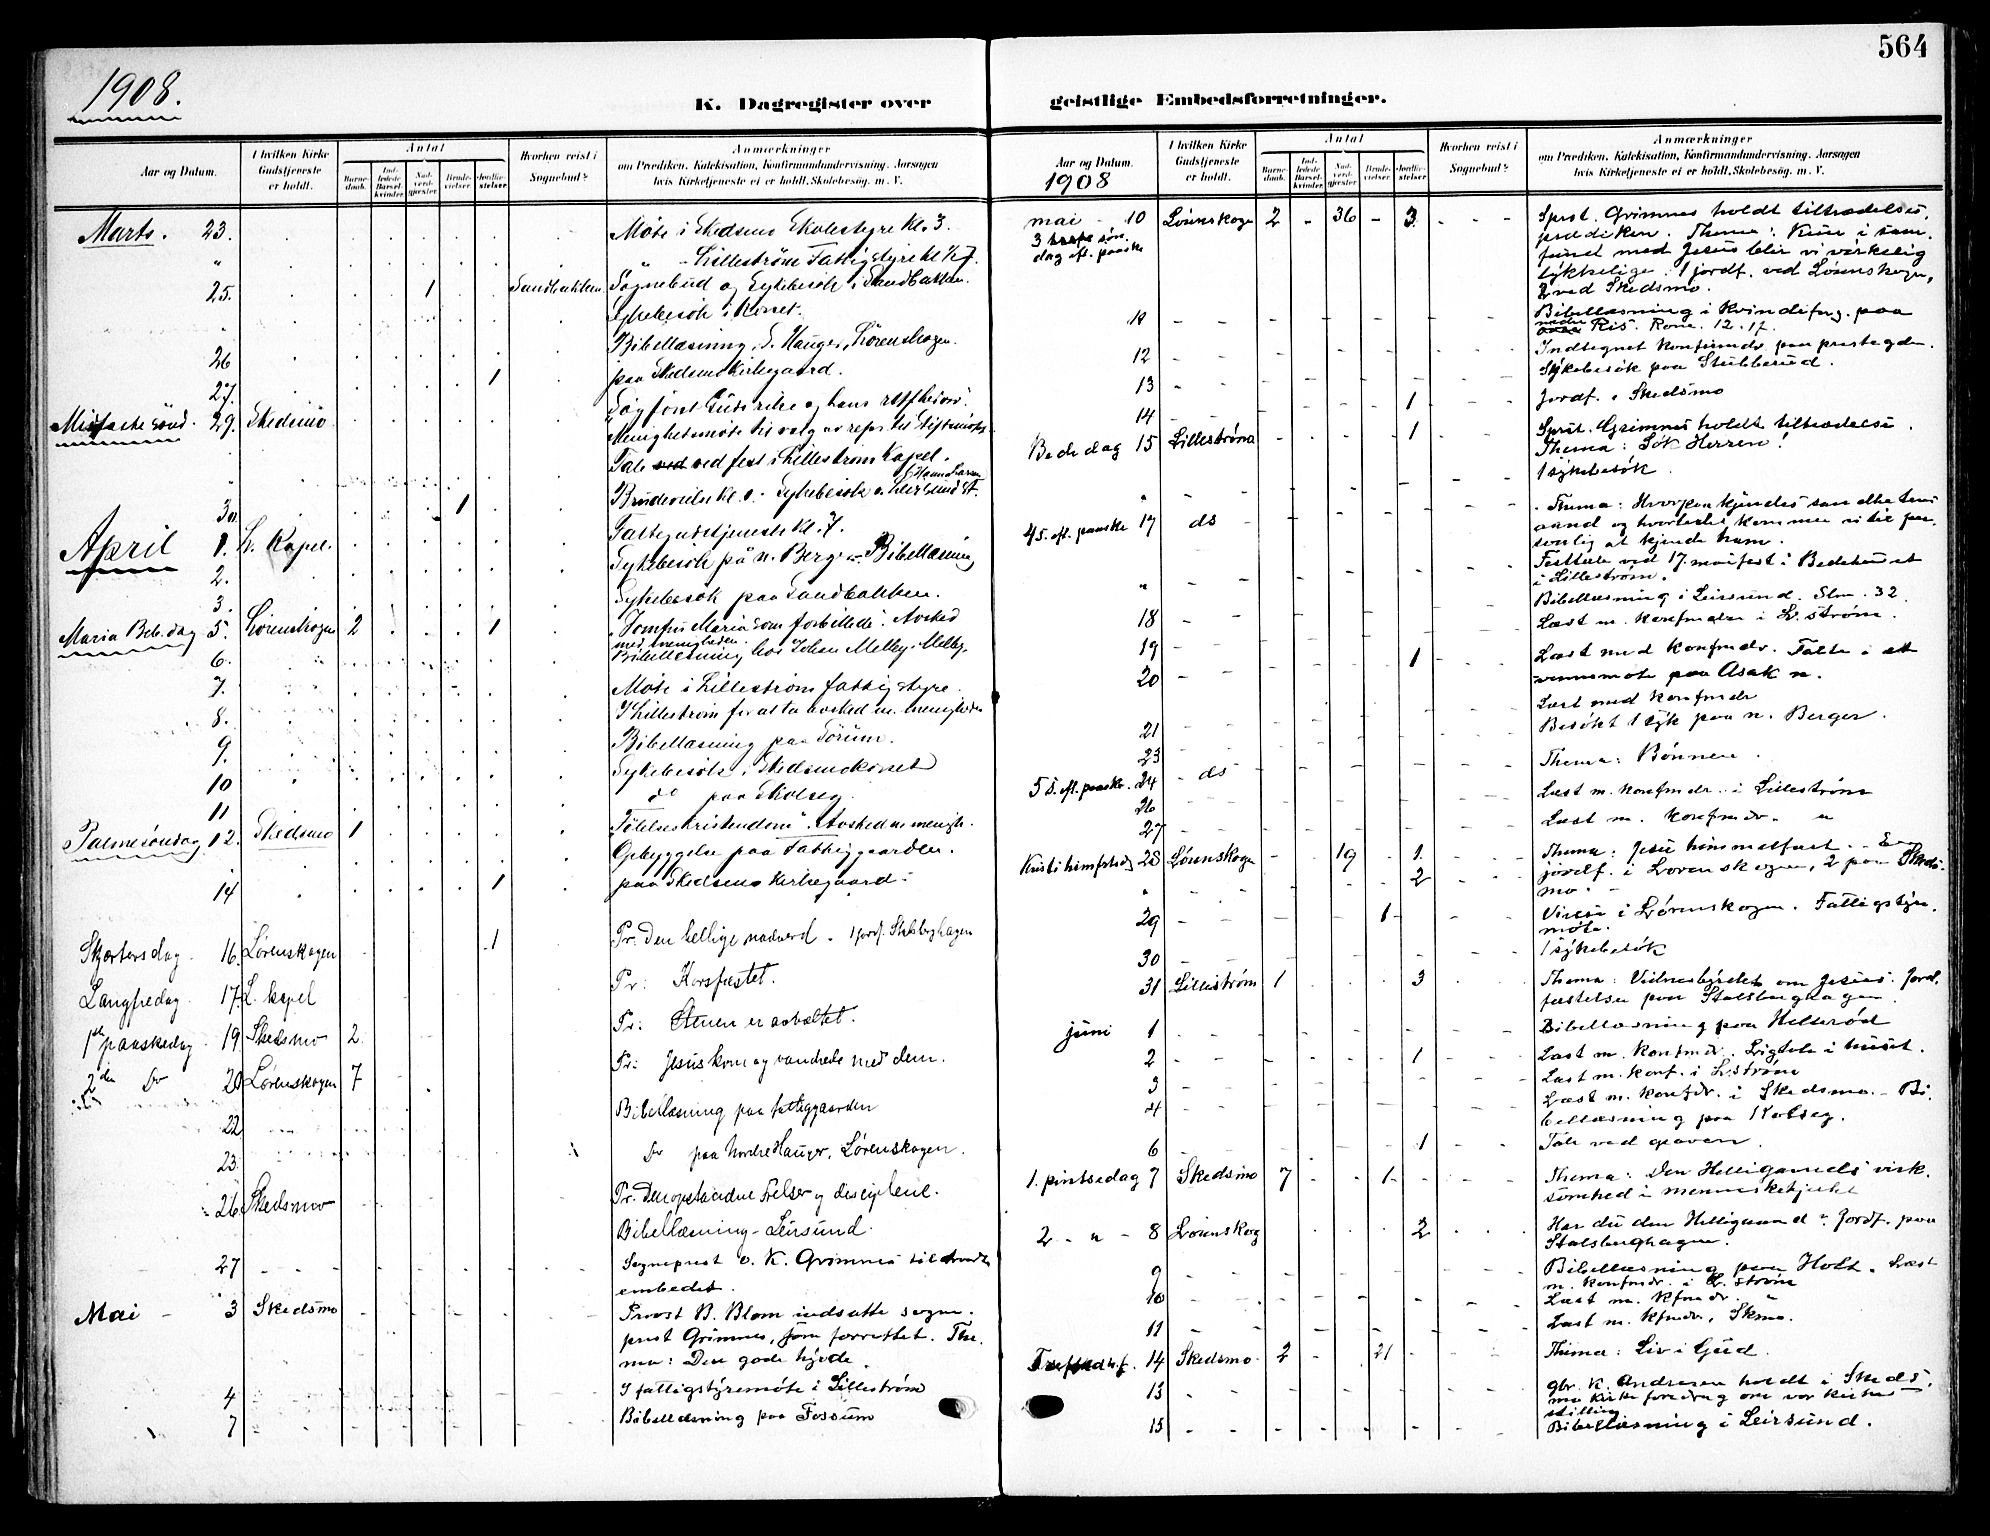 564
1908.
K. Dagregister over
geistlige Embedsforretninger.
Aar og Datum.
I hvilken Kirke Gudstjeneste er holdt.
Antal
Barnedaab.
Indledede Barselkvinder
Nadverdgjester
Brudevielser
Jordfæstelser
Hvorhen reist i Sognebud?
Anmærkninger
om Prædiken, Katekisation, Konfirmandundervisning, Aarsagen
hvis Kirketjeneste ei er holdt, Skolebesøg. m. V.
Marts. 23. Møte i Skedsmo Skolestyre Kl. 3.
" " Lilleström Fattigstyre kl
25. 1 Sandbakken Sognebud og Sykebesök i Sandbakken.
Sykebesök i Kornet.
26 Bibellæsning, S. Hauger, Lörenskogen.
27. 1 paa Skedsmo Kirkegaard.
Midfaste sönd. 29. Skedsmo Søg först Guds rike og hans
Menighetsmöte til valg av repr. til Stiftsmöte
Tale ved fest i Lilleström Kapel.
30. 1 Brudevielse kl.
April 1. L. Kapel. Fastegudstjeneste Kl. 7.
2. Sykebesök på n. Berg Bibellæsning
3. Sykebesök paa Sandbakken.
Maria Beb. dag 5. Lörenskogen 2 1 "Jomfru Maria som forbillede. Avsked
med menigheden.
6. Bibellæsning hos Johan Melby, Melby.
7. Möte i Lilleströms fattigstyre.
8. I Lilleström for at ta avsked m. menigheden
9. Bibellæsning paa Sörum.
10 Sykebesök i Skedsmokornet
11 do paa Skolseg.
Palmesöndag 12. Skedsmo 1 "Fölelseskristendom". Avsked m. menigh.
Opbyggelse paa Fattiggaarden.
14 1 paa Skedsmo Kirkegaard.
Skjærtorsdag 16. Lørenskogen 1 Pr. Den hellige nadverd. 1 jordf. Stalsberghagen
Langfredag. 17. L. kapel Pr: Korsfæstet.
1ste paaskedag 19 Skedsmo 2. Pr: Stenen er avvæltet.
2den Do 20 Lørenskogen 7 Pr: Jesus kom og vandrede med dem.
22 Bibellæsning paa fattiggaarden
23. Do paa Nordre Hauger, Lørenskogen.
26 Skedsmo Pr. Den opstandne Frelser og disciplene.
Bibellæsning - Leirsund.
27 Sogneprest O. K. Grimnes tiltraadte
embedet.
Mai 3 Skedsmo Provst B. Blom indsatte sogne-
prest Grimnes, som forrettet. The-
ma: Den gode hyrde.
4 I fattigstyremøte i Lillestrøm
7 Bibellæsning paa Fossum
Aar og Datum.
1908
I hvilken Kirke Gudstjeneste er holdt.
Antal
Barnedaab.
Indledede Barselkvinder
Nadverdgjester
Brudevielser
Jordfæstelser
Hvorhen reist i Sognebud?
Anmærkninger
om Prædiken, Katekisation, Konfirmandundervisning, Aarsagen
hvis Kirketjeneste ei er holdt, Skolebesøg. m. V.
mai 10 Lørenskogen 2 - 36 - 3. Sprst. Grimnes holdt tiltrædelses-
3 søn- prædiken. Thema: Kun i sam-
dag eft. paaske fund med Jesus blir vi virkelig
lykkelige. 1 jordf. ved Lørenskogen,
2 ved Skedsmo.
11 Bibellæsning i Kvindeforg. paa
nedre Ris. Rom. 12. 17.
12 Indtegnet konfirmdr paa prestegden.
13 Sykebesøk paa Stubberud.
14 1 Jordf. i Skedsmo
Bededag 15 Lillestrøm 1 Sprst. Grimnes holdt tiltrædelse.
Thema: Søk Herren!
" 1 sykebesøk.
4 s. eft. paaske 17 ds Thema: Hvorpaa kjendes sandhetens
aand og hvorledes kommer vi til per-
sonlig at kjende ham.
" Festtale ved 17. maifest i Bedehuset
i Lillestrøm.
18 Bibellæsning i Leirsund. Slm. 32.
19 Læst m. konfirmdr i L.strøm.
20 1 Læst med konfmdr. Talte i et
vennemøte paa Asak n.
21 Læst med konfmdr
23 Besøkt 1 syk paa n. Berger.
5 S. eft. paaske. 24 ds Thema: Bønnen.
26 Læst m. konfmdr. i Lillestrøm
27 Læst m. konfmdr. "
Kristi himfartsd. 28 Lørenskogen 19 1. Thema: Jesu himmelfart. - En
" 2 jordf. i Lørenskogen, 2 paa Skeds-
mo.
29 1 Vielse i Lørenskogen. Fattigstyre-
møte.
30 1 sykebesøk
31 Lillestrøm 1 3 Thema: Vidnesbyrdet om Jesus. Jord-
fæstelse paa Stalsberghagen.
juni 1 Bibellæsning paa Hellerød
2 1 Læst m. konfmdr. Ligtale i huset.
3 Læst m. konf. i L.strøm
4 Læst m. konfdr. i Skedsmo. - Bi-
bellæsning paa Kolseg.
6 1 Tale ved graven.
1. pintsedag 7 Skedsmo 7 1 Thema: Den Helligaands virk-
somhed i menneskehjertet
2 - " - 8 Lørenskog 2 Har du den Helligaand? Jordf. paa
Stalsberghagen.
9 Bibellæsning paa Holt. Læst
m. konfmdr. i L.strøm
10 Læst m. kfmdr. "
11 Læst m. kfmdr, Skmo.
14 Skedsmo 2 21 Thema: Liv i Gud.
13 gbr. K. Andresen holdt i Skeds-
mo kirke foredrag om vor kirkes
stilling
15 Bibellæsning i Leirsund.